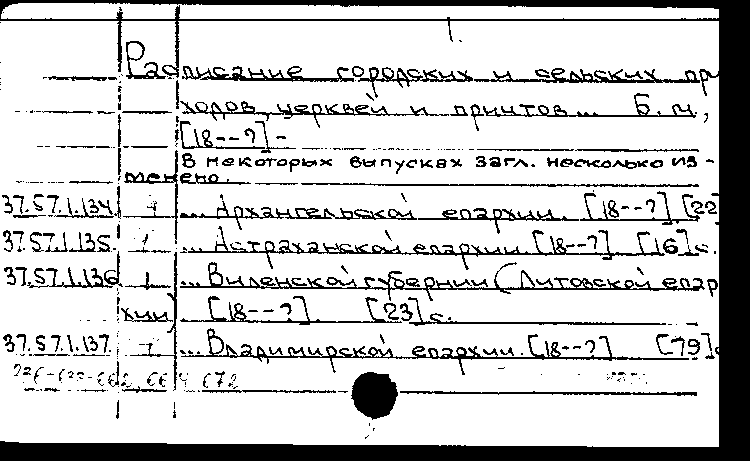 1.
Расписание городских и сельских при
ходов, церквей и принтов... Б.м.,
[18--?]-
В некоторых выпусках загл. несколько из-
менено.
37.57.1.134. 1 ... Архангельской епархии. [18--?] [22]
37.57.1.135. 1 ... Астраханской епархии. [18--?] [16]с.
37.57.1.136 1 ... Виленской губернии (Литовской епар
хии) [18--?]. [23]с.
37.57.1.137. 1 ... Владимирской епархии. [18--?] [79]с